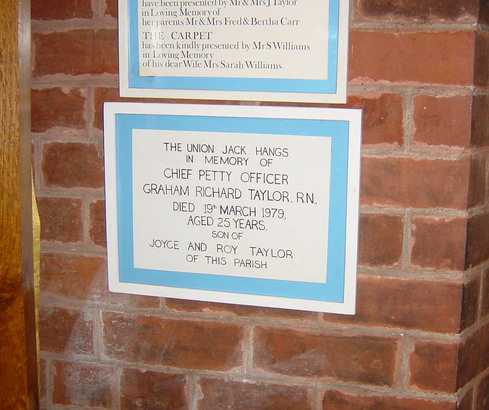 have been presented by Mr & Mrs J Taylor
in Loving Memory of
her parents Mr & Mrs Fred & Bertha Carr
THE CARPET
has been kindly presented by Mr S Williams
in Loving Memory
of his dear Wife Mrs Sarah Williams
THE UNION JACK HANGS
IN MEMORY OF
CHIEF PETTY OFFICER
GRAHAM RICHARD TAYLOR. R.N.,
DIED 19th MARCH 1979,
AGED 25 YEARS.
SON OF
JOYCE AND ROY TAYLOR
OF THIS PARISH